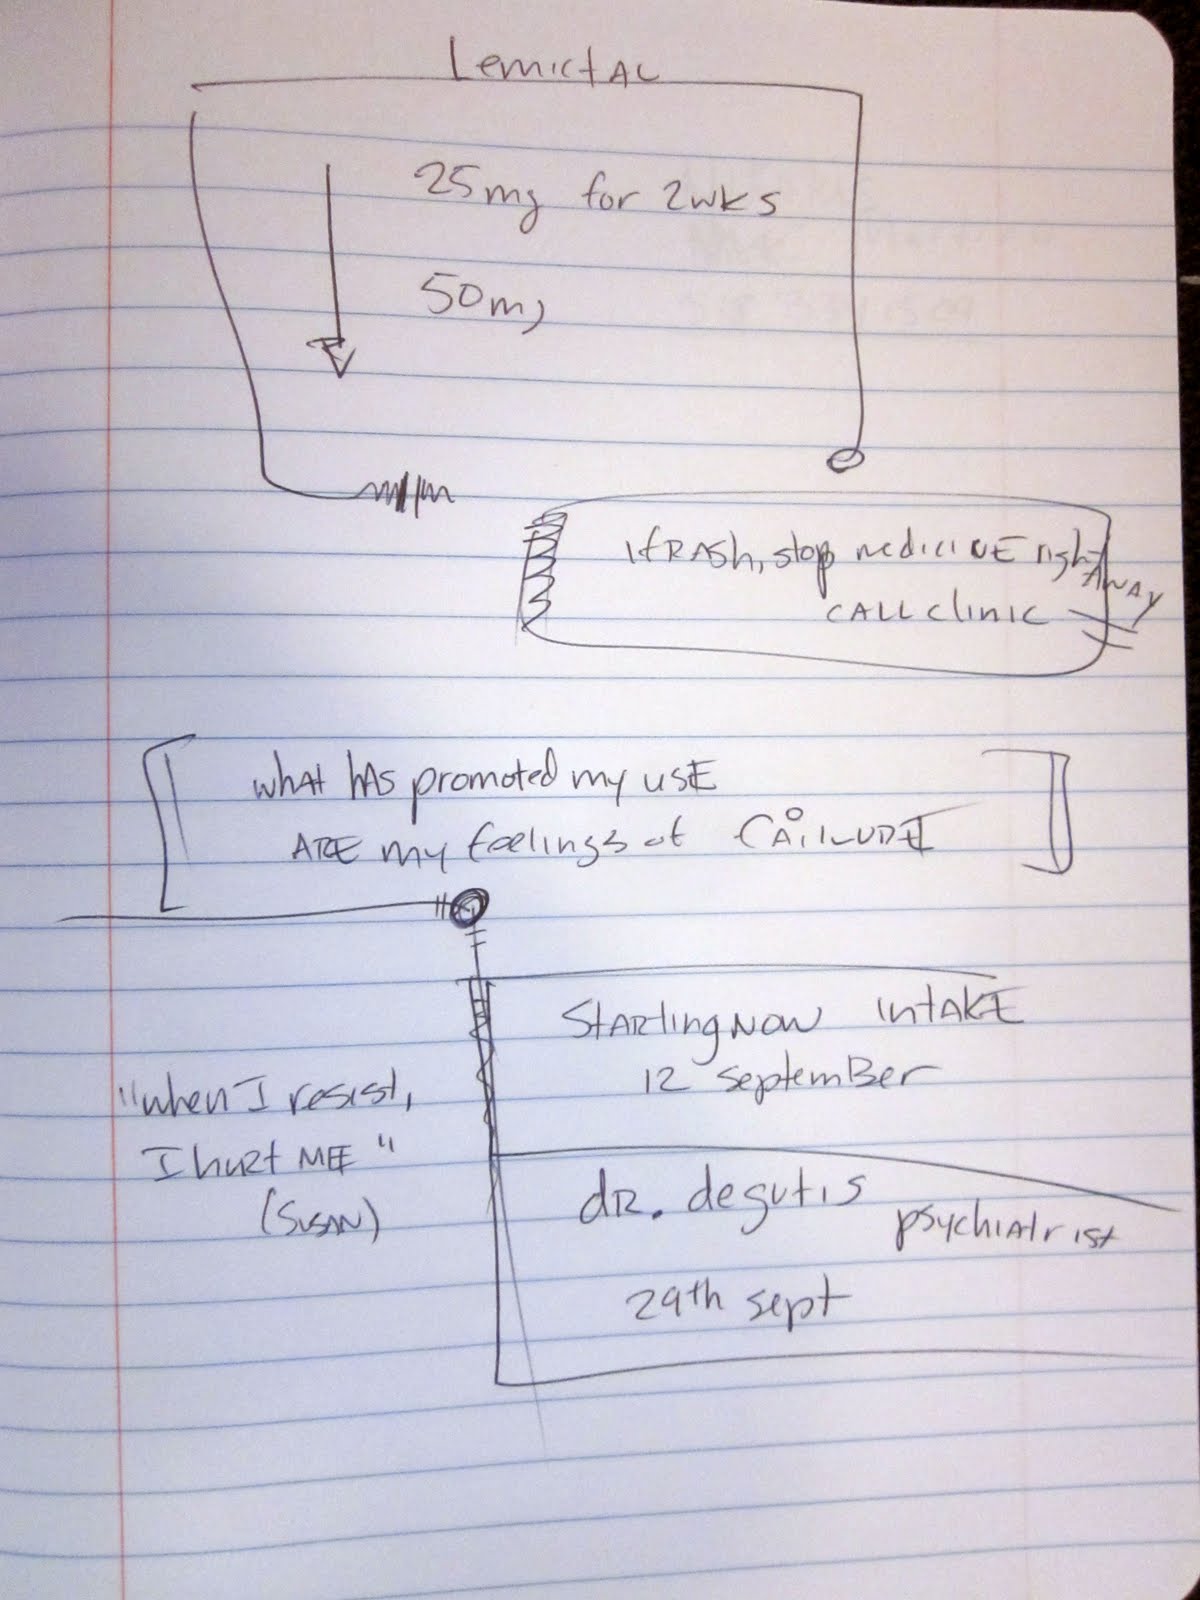 LemictAL
25mg for 2wks
50mg
If RASh, stop medicINE right
AWAY
CALL clinic
what hAs promoted my usE
ARE my feelings of FAiluRE
StARting NOW INtAKE
12 september
"when I resist,
I hurt ME"
(SUSAN)
dR. degutis
psychiatrist
29th sept